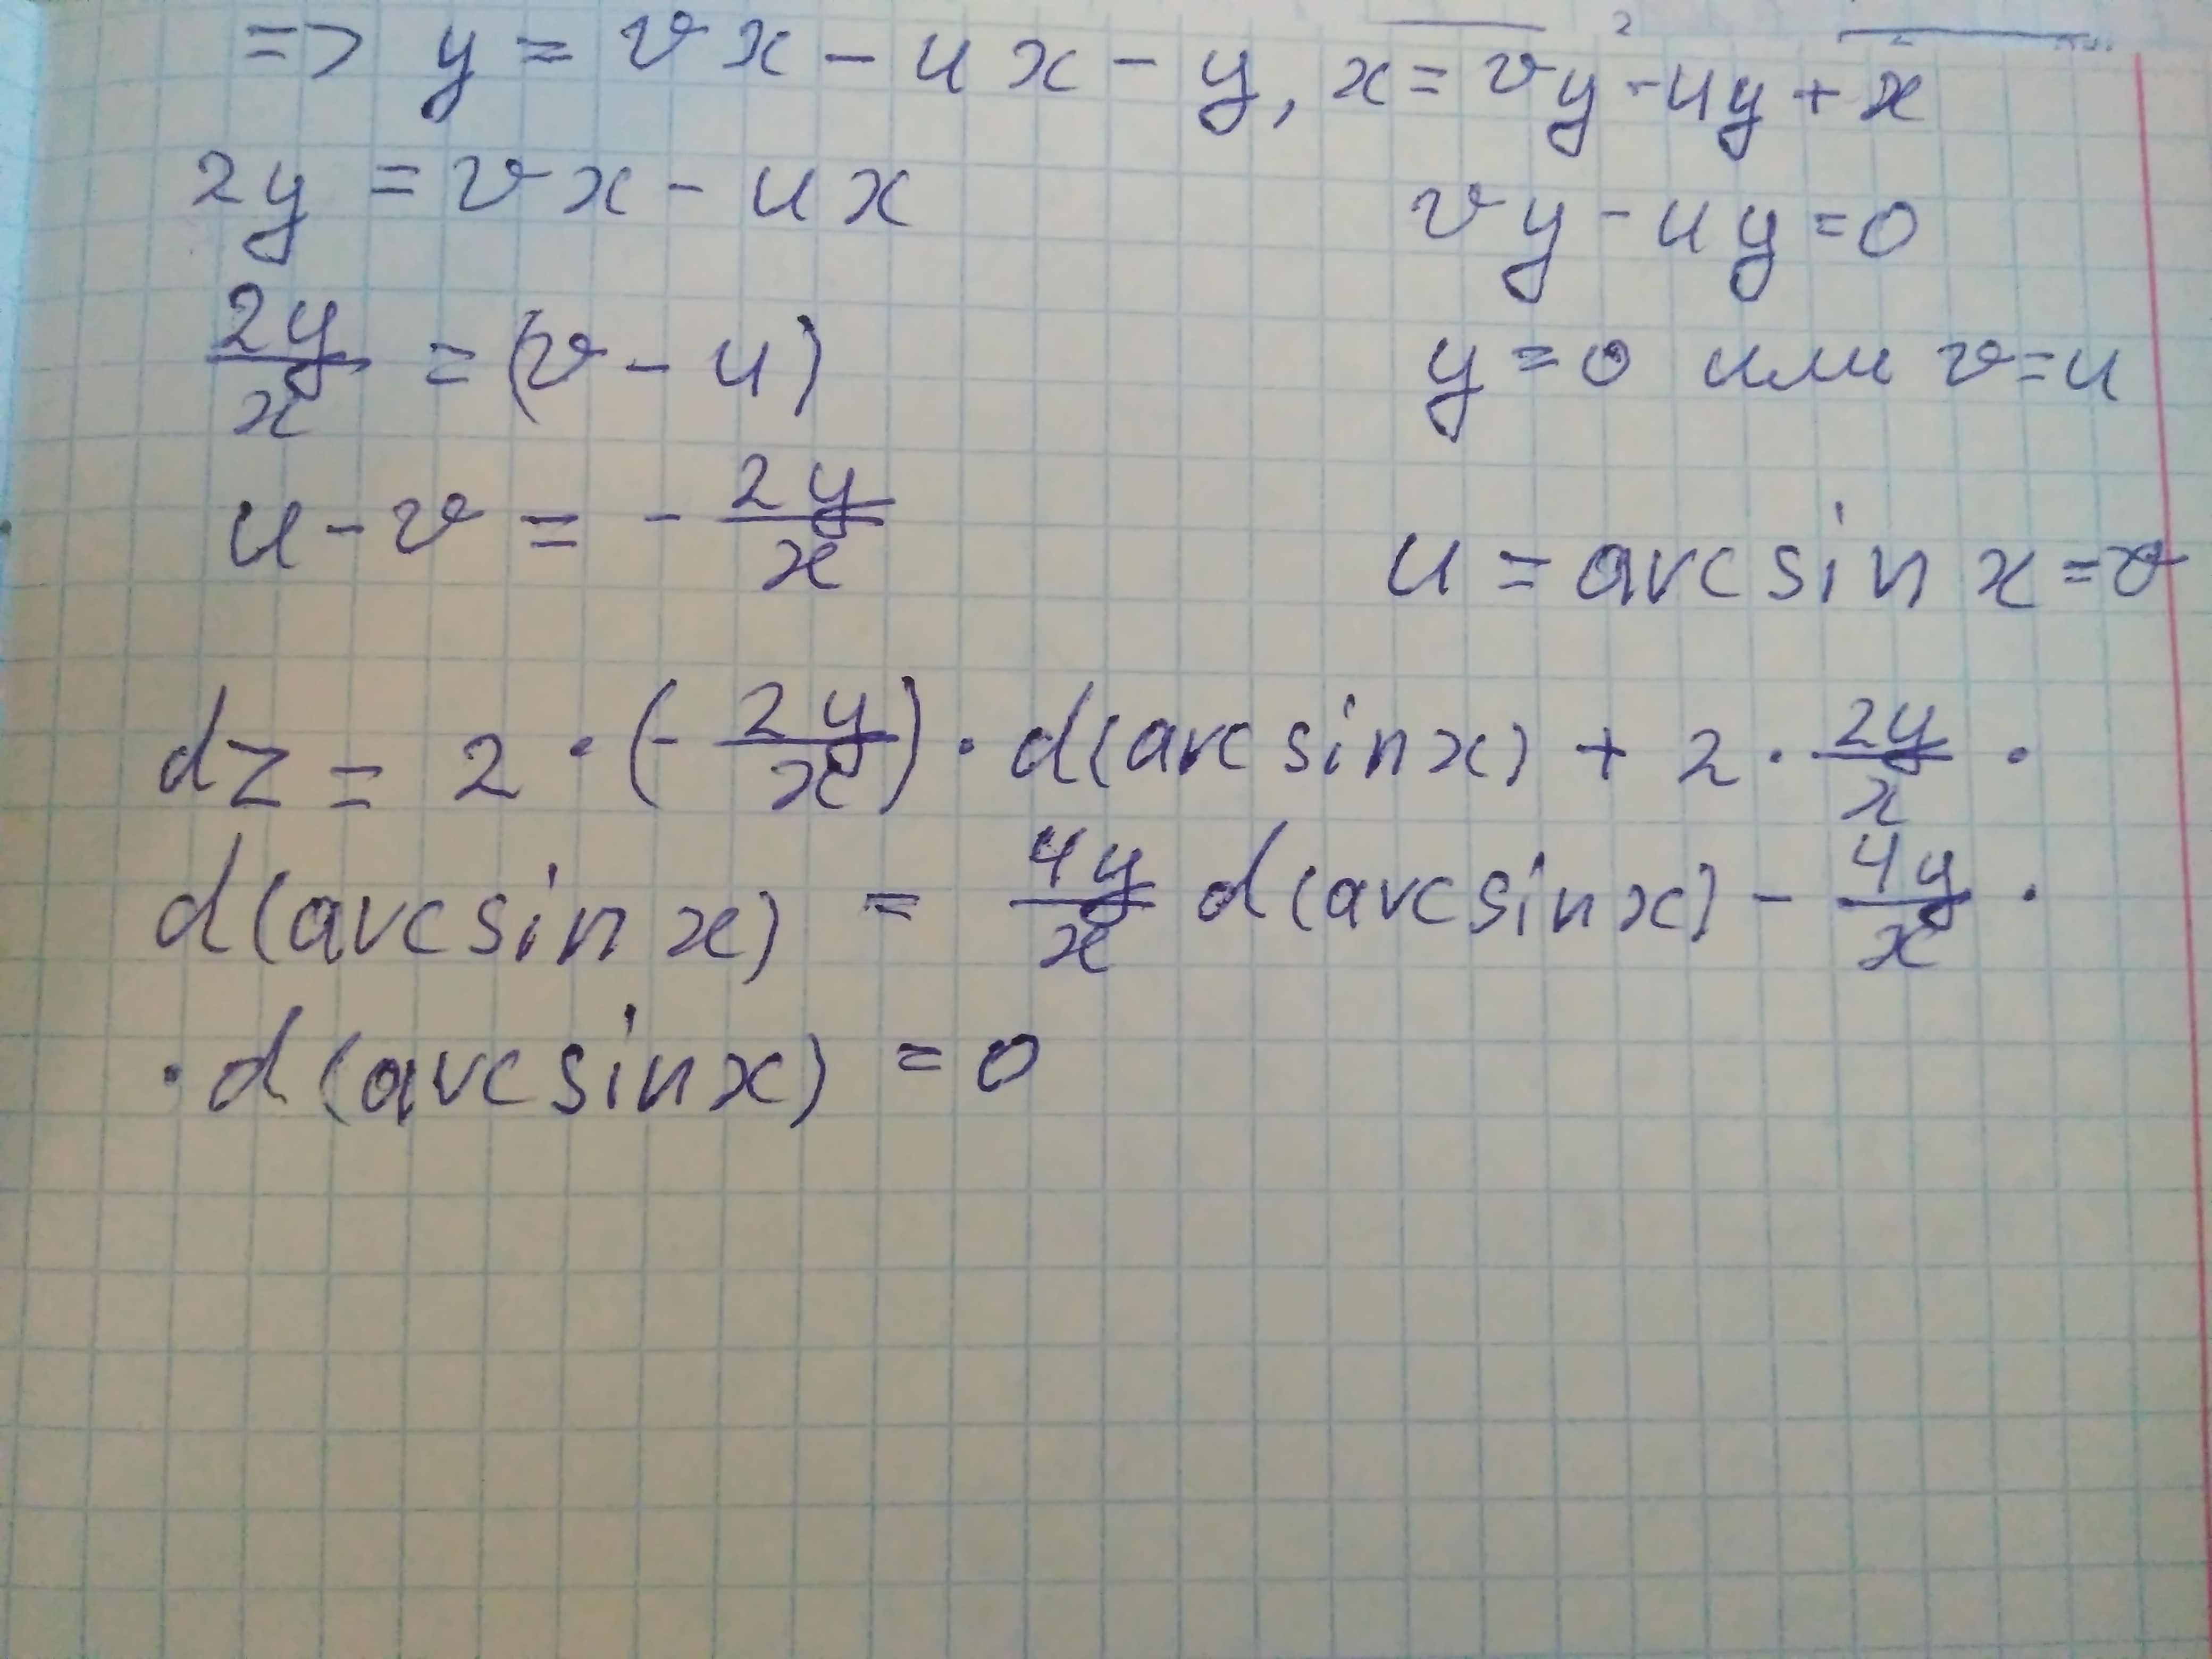 => y = vx - ux - y, x = vy - uy + x
2y = vx - ux
vy - uy = 0
2y/x = (v - u)
y = 0 или v = u
u - v = - 2y/x
u = arcsin x = v
dz = 2 · (- 2y/x) · d(arcsin x) + 2 · 2y/x ·
d(arcsin x) = 4y/x d(arcsin x) - 4y/x ·
· d(arcsin x) = 0